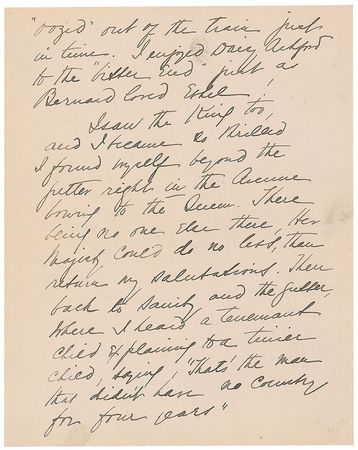 "oozed" out of the train just
in time. I enjoyed Daisy Ashford
to the "bitter End" just as
Bernard loved Ethel!
I saw the King too,
and I became so thrilled
I found myself beyond the
gutter right in the Avenue
bowing to the Queen. There
being no one else there, Her
Majesty could do no less, than
return my salutations. Then
back to sanity and the gutter,
Where I heard a tenement
child explaining to a tinier
child, saying, "That's the man
that didn't have no Country
for four years"